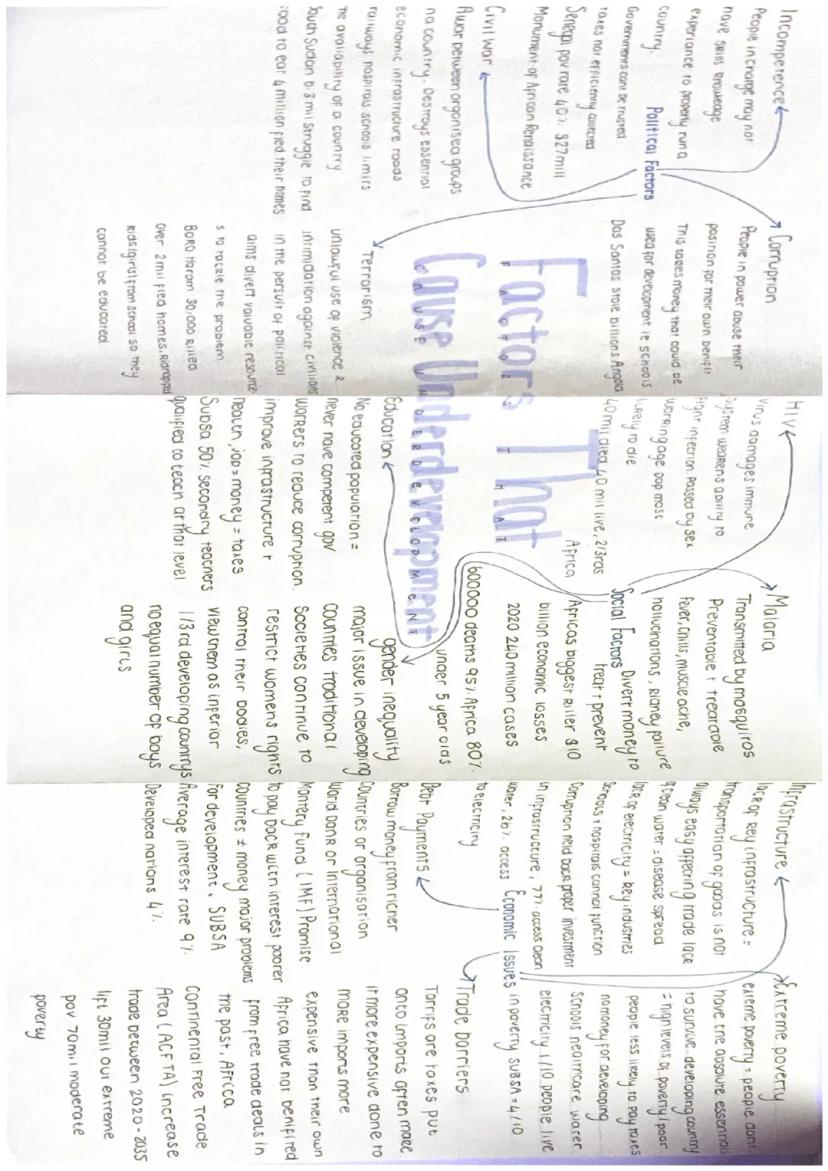 Incompetence
People in charge may not
have skills knowledge
experiance to properly run a
country.
Governments cant be trusted
taxes not efficiently collected
Senegal pov rare 40% $27mill
Monument of African Renaissance
Political Factors
Corruption
People in power abuse their
position for their own benifit
This takes money that could be
used for development ie schools
Dos Santos stole billions Angola
Civil war
A war between organised groups
in a country. Destroys essential
economic infrastructure roads
railways hospitals schools limits
the availability of a country
South Sudan 6.3 mil struggle to find
food to eat 4 million fled their homes
Terrorism
unlawful use of violence &
intimidation against civilians
in the persuit of political
aims divert valuable resource
s to tackle the problem.
Boko Haram 30,000 killed
over 2 mil fled homes, kidnapped
kids (girls) from school so they
cannot be educated
Factors That
FACTORS THAT
Cause Underdevelopment
CAUSE UNDERDEVELOPMENT
HIV
virus damages immune
system weakens ability to
fight infection Passed by sex
working age pop most
likely to die
40 mil died 40 mil live, 2/3rds
Africa
Social Factors
Malaria
Transmitted by mosquitos
Preventable + treatable
fever, chills, muscle ache,
hallucinations, kidney failure
Divert money to
treat + prevent
Africas biggest killer $10
billion economic losses
2020 240 million cases
600000 deaths 95% Africa 80%
under 5 year olds
Education
No educated population =
never have competent gov
workers to reduce corruption.
improve infrastructure +
health, jobs = money = taxes
Subsa 50% secondary teachers
qualified to teach at that level
gender inequality
major issue in developing
countries traditional
societies continue to
restrict womens rights
control their bodies,
view them as inferior
1/3rd developing countrys
no equal number of boys
and girls
Infrastructure
lack of key infrastructure =
transportation of goods is not
always easy affecting trade lack
of clean water = disease spread
lack of electricity = key industries
schools + hospitals cannot function
Corruption held back proper investment
in infrastructure, 77% access clean
water, 26% access
to electricity
Economic Issues
Extreme poverty
extreme poverty = people dont
have the absolute essentials
to survive. developing country
= high levels of poverty/ poor
people less likely to pay taxes
no money for developing
schools healthcare water
electricity 1/10 people live
in poverty SUBSA = 4/10
Debt Payments
Borrow money from richer
countries or organisation
World bank or International
Montery fund (IMF) Promise
to pay back with interest poorer
countries ≠ money major problems
for development. SUBSA
Average interest rate 9%.
Developed nations 4%
Trade barriers
Tarrifs are taxes put
onto imports often make
it more expensive done to
make imports more
expensive than their own
Africa have not benifited
from free trade deals in
the past, Africa
Continental Free Trade
Area (ACFTA) increase
trade between 2020-2035
lift 30mil out extreme
pov 70mil moderate
poverty